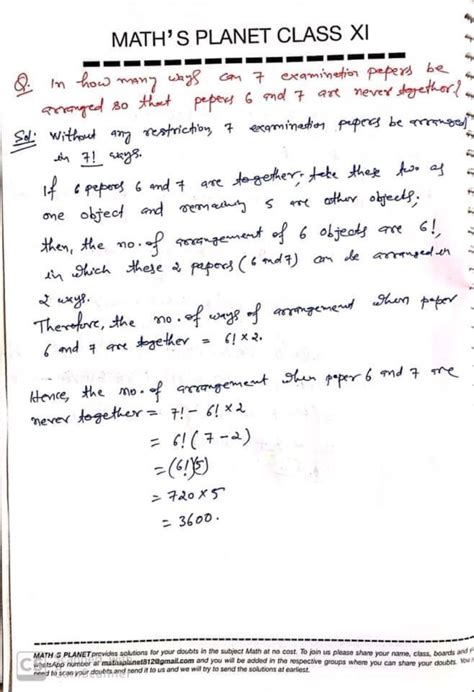 MATH'S PLANET CLASS XI
Q. In how many ways can 7 examination papers be
arranged so that papers 6 and 7 are never together?
Sol: Without any restriction, 7 examination papers be arranged
in 7! ways.
If 6 papers 6 and 7 are together, take these two as
one object and remaining 5 are other objects;
then, the no. of arrangement of 6 objects are 6!,
in which these 2 papers (6 and 7) can be arranged in
2 ways.
Therefore, the no. of ways of arrangement when paper
6 and 7 are together = 6! × 2.
Hence, the no. of arrangement when paper 6 and 7 are
never together = 7! - 6! × 2
= 6! (7 - 2)
= (6!)(5)
= 720 × 5
= 3600.
MATH'S PLANET provides solutions for your doubts in the subject Math at no cost. To join us please share your name, class, boards and
whatsApp number at mathsplanet312@gmail.com and you will be added in the respective groups where you can share your doubts. You
need to scan your doubts and send it to us and we will try to send the solutions at earliest.
CS